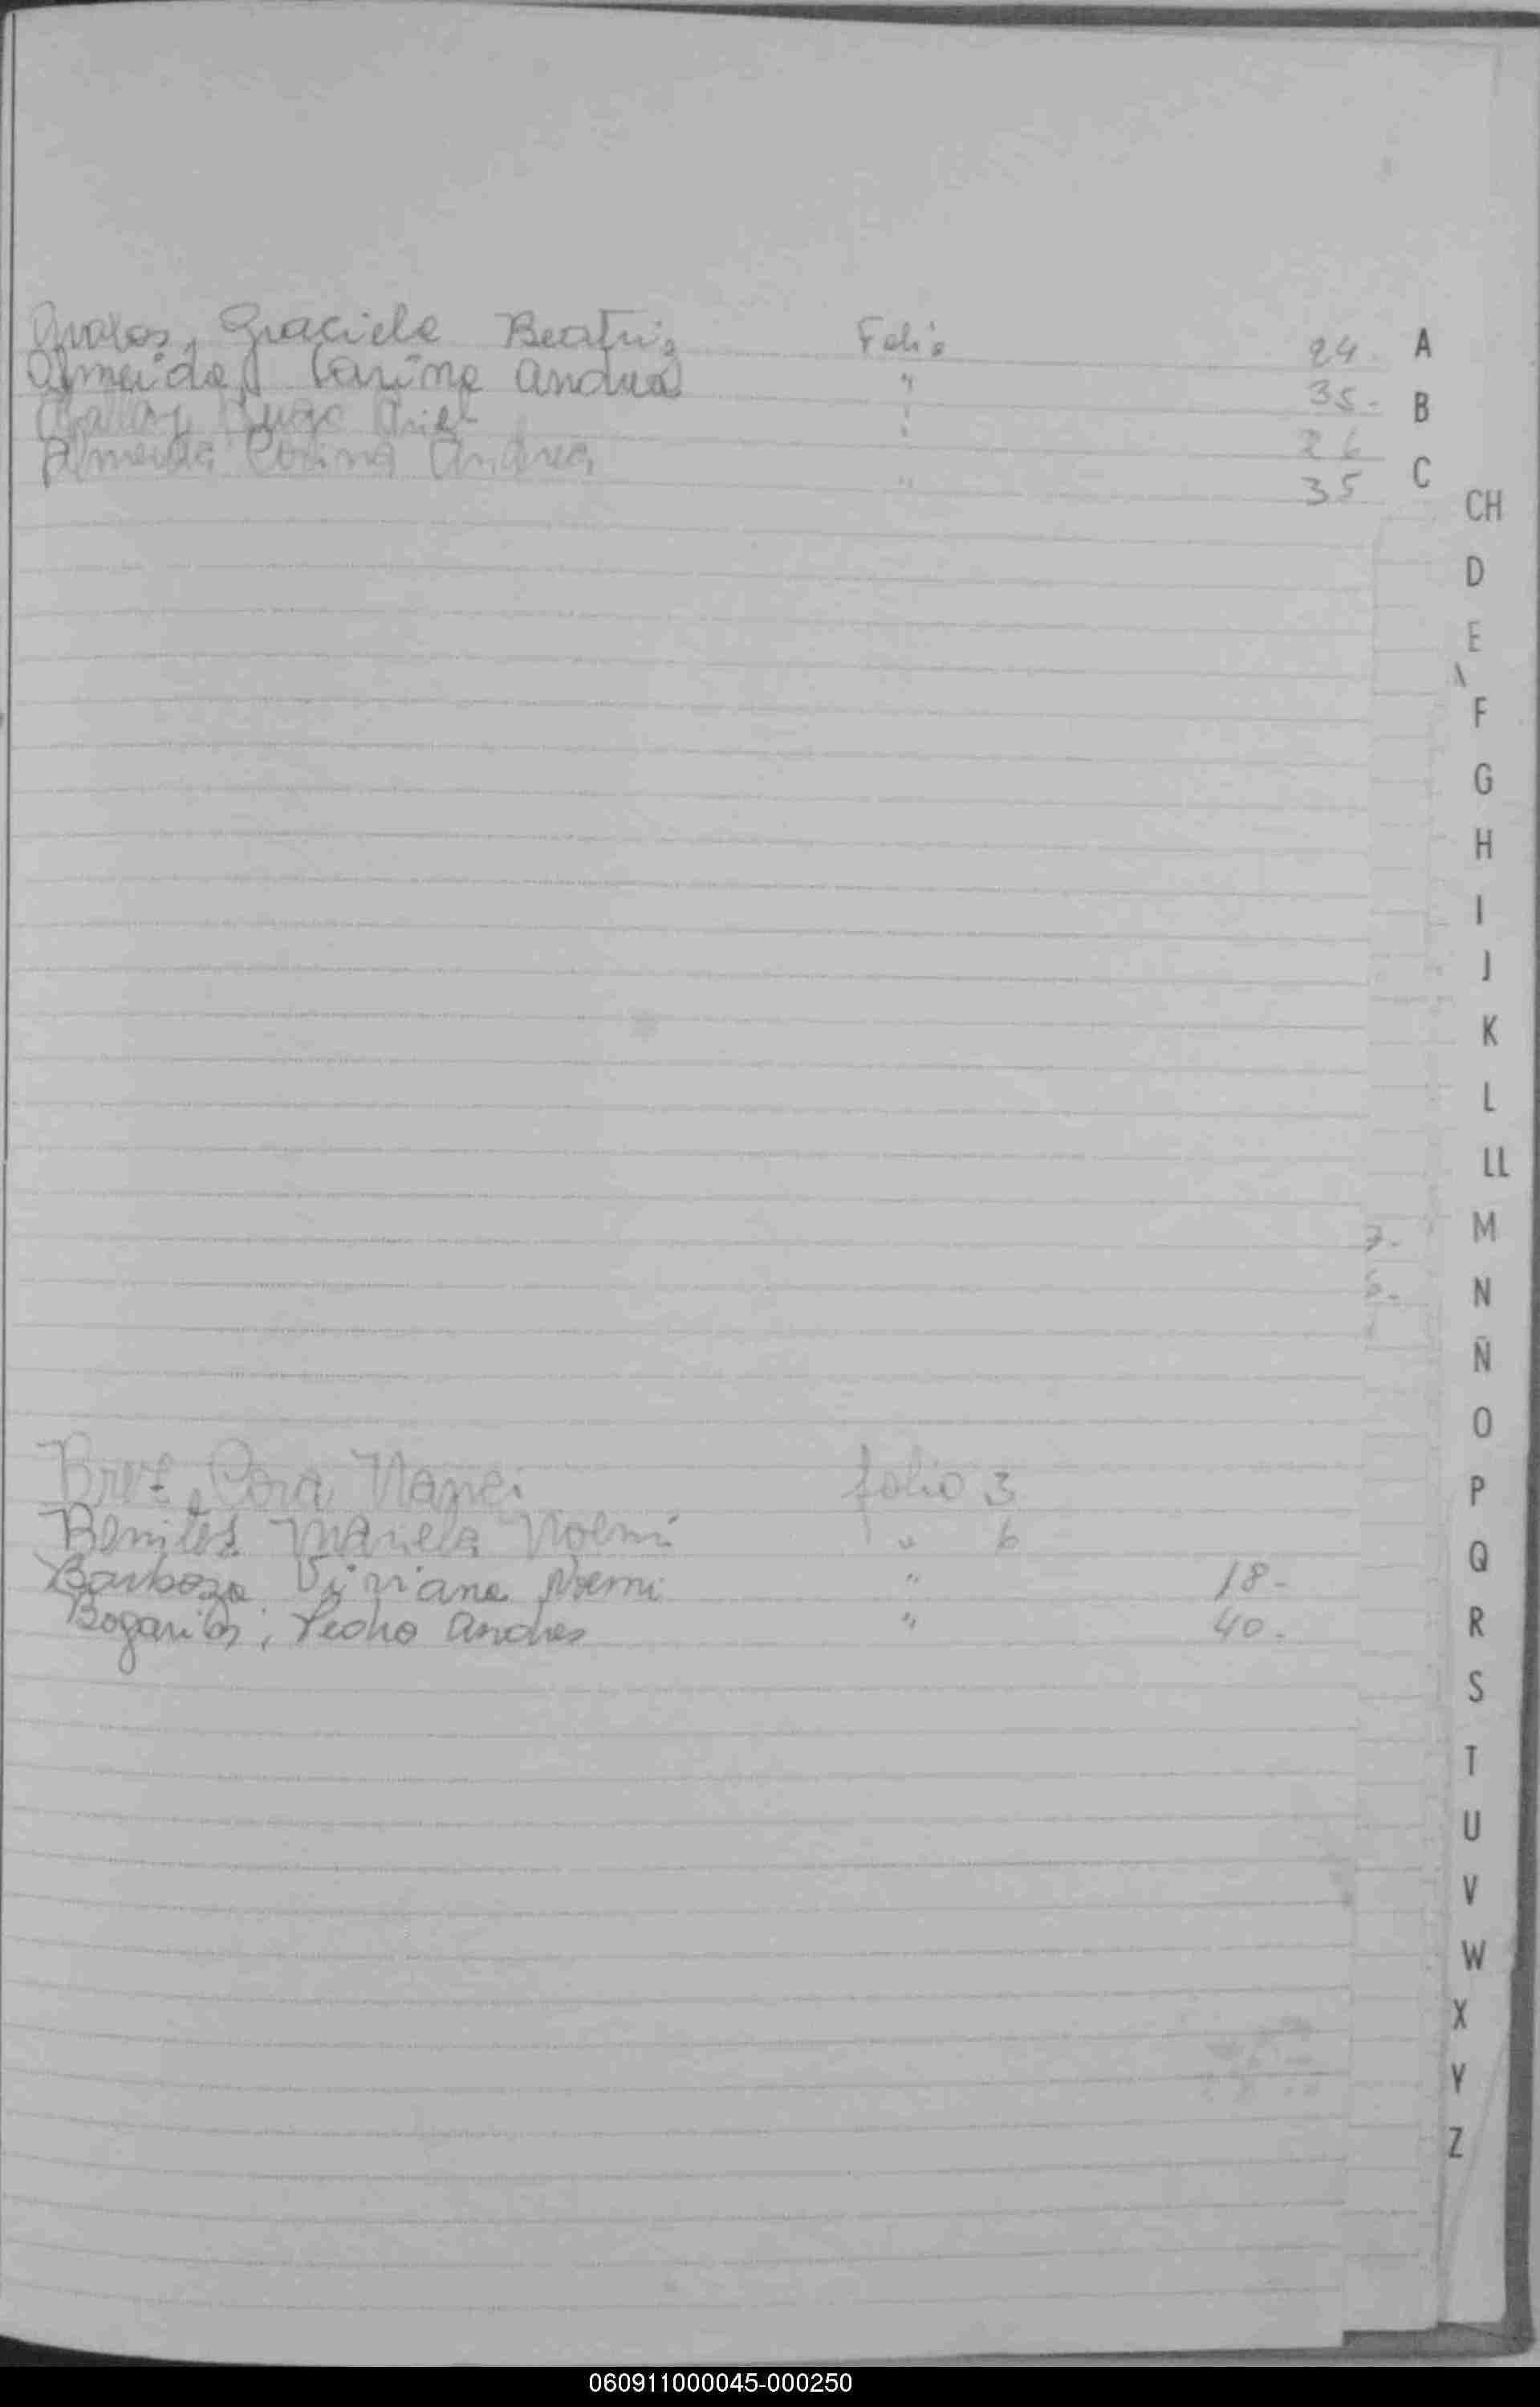 Avalos, Graciela Beatriz Folio 24 A
Almeida, Carina Andrea " 35- B
Hugo Ariel " 26
Almeida Corina Andrea " 35 C
CH
D
E
F
G
H
I
J
K
L
LL
7- M
6- N
Ñ
O
Cora Nanci folio 3 P
Benitez Mariela Noemi " 6
Q
Barboza Viviana Noemi " 18-
Pedro Andres " 40- R
S
T
U
V
W
X
Y
Z
060911000045-000250